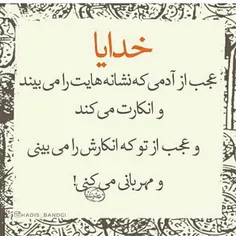 خدایا
عجب از آدمی که نشانه هایت را می بیند
و انکارت می کند
و عجب از تو که انکارش را می بینی
و مهربانی می کنی!
HADIS_BANDGI